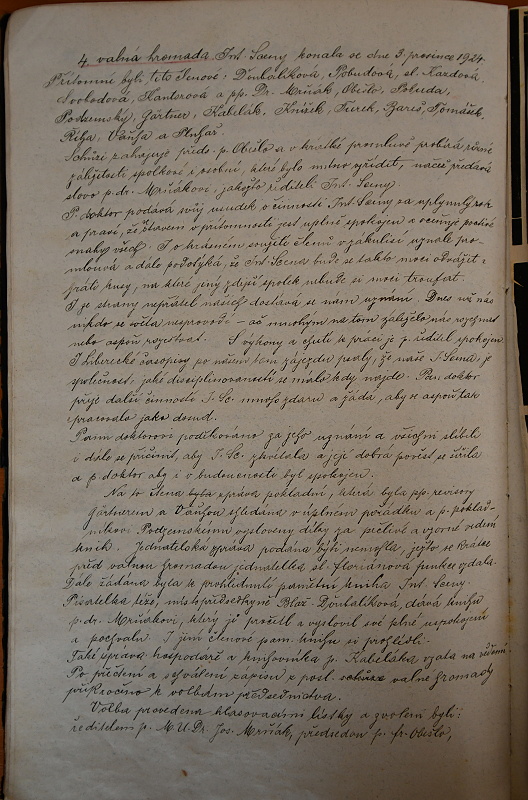 4 valná hromada Int. Sceny konala se dne 3. prosince 1924.
Přítomni byli tito členové: Doubalíková, Pobudová, sl. Kazdová,
Svobodová, Kantorová a pp. Dr. Mrňák, Obešlo, Pobuda,
Podzemský, Gärtner, Kabelák, Knížek, Turek, Bareš, Tomášek,
Říha, Váňa a
Schůzi zahajuje předs. p. Obešlo a v krátké promluvě probírá různé
záležitosti spolkové i osobní, které bylo nutno vyřídit, načež předává
slovo p. dr. Mrňákovi, jakožto řediteli Int. Sceny.
P. doktor podává svůj úsudek o činnosti Int. Sceny za uplynulý rok
a praví, že stavem v přítomnosti jest úplně spokojen a oceňuje poctivé
snahy všech. I o krásném soužití členů v zákulisí uznale pro-
mlouvá a dále podotýká, že Int. Scena bude se takto moci odvážit i
zráti kusy, na které jiný zdejší spolek nebude si moci troufat.
I ze strany nepřátel našich dostává se nám uznání. Dnes už nás
nikdo se světa nesprovodí – ač mnohým na tom záleželo, nás rozehnat
nebo aspoň rozeštvat. – S výkony a chutí k práci je p. ředitel spokojen
I liberecké časopisy po našem tam zájezdu psaly, že naše I. Scena, je
společnost, jaké disciplinovanosti se málo kdy najde. Pan doktor
přeje další činnosti I. Sc. mnoho zdaru a žádá, aby se aspoň tak
pracovalo jako dosud.
Panu doktorovi poděkováno za jeho uznání a všichni slíbili
i dále se přičinit, aby I. Sc. zkvétala a její dobrá pověst se šířila
a p. doktor aby i v budoucnosti byl spokojen.
Na to čtena zpráva pokladní, která byla pp. revisory
Gärtnerem a Váňou shledána v úplném pořádku a p. poklad-
níkovi Podzemskému vysloveny díky za pečlivé a vzorné vedení
knih. Jednatelská zpráva podána býti nemohla, ježto se krátce
před valnou hromadou jednatelka sl. Floriánová funkce vzdala.
Dále žádána byla k prohlédnutí pamětní kniha Int. Sceny.
Pisatelka téže, místopředsedkyně Blaž. Doubalíková, dává knihu
p. dr. Mrňákovi, který ji pročetl a vyslovil své plné uspokojení
a pochvalu. I jiní členové pam. knihu si prohlédli.
Také zpráva hospodáře a knihovníka p. Kabeláka vzata na vědomí
Po přečtení a schválení zápisu z posl. schůze valné hromady
přikročeno k volbám předsednictva.
Volba provedena hlasovacími lístky a zvoleni byli:
ředitelem p. M.U.Dr. Jos. Mrňák, předsedou p. Fr. Obešlo,